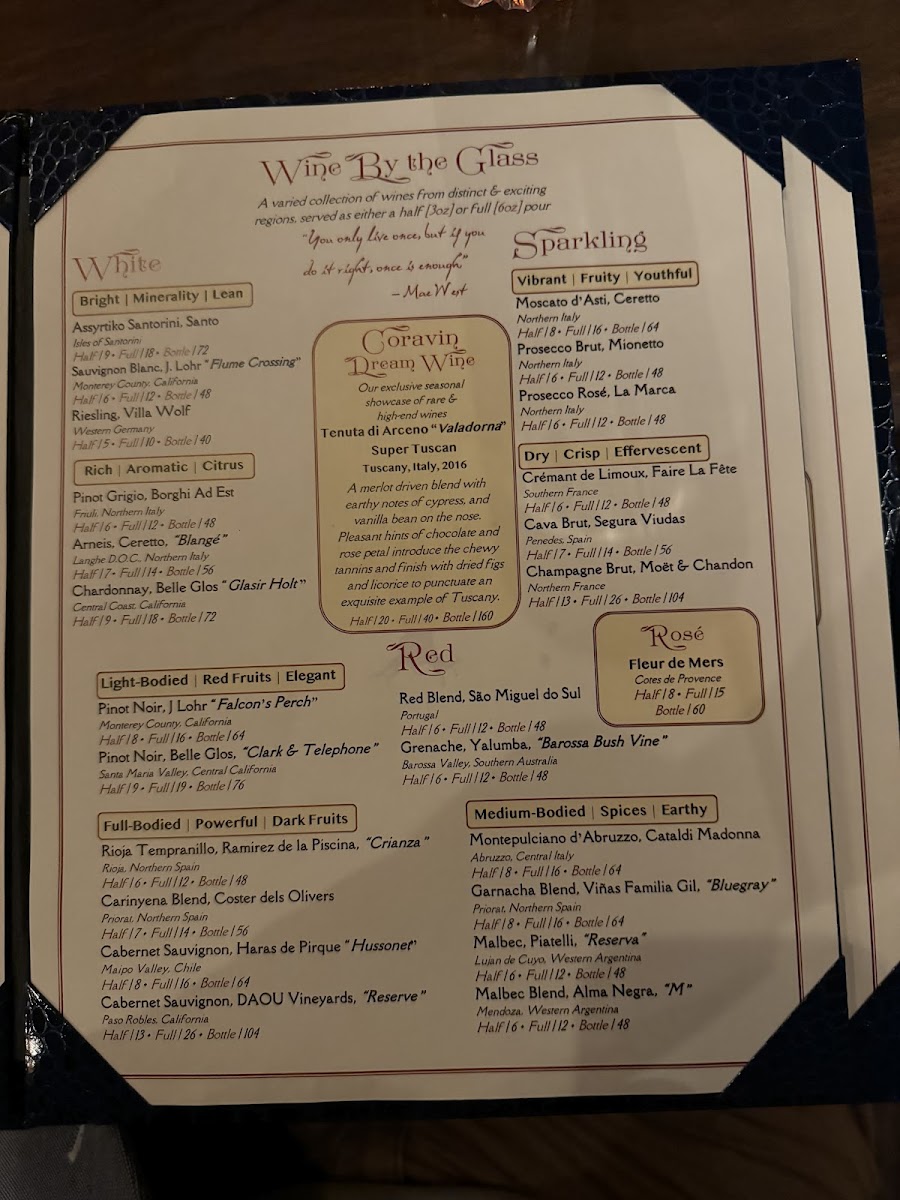 Wine By the Glass
A varied collection of wines from distinct & exciting
regions, served as either a half [3oz] or full [6oz] pour
"You only live once, but if you
do it right, once is enough"
- Mae West
White
Bright | Minerality | Lean
Assyrtiko Santorini, Santo
Isles of Santorini
Half | 9 • Full | 18 • Bottle | 72
Sauvignon Blanc, J. Lohr "Flume Crossing"
Monterey County, California
Half | 6 • Full | 12 • Bottle | 48
Riesling, Villa Wolf
Western Germany
Half | 5 • Full | 10 • Bottle | 40
Rich | Aromatic | Citrus
Pinot Grigio, Borghi Ad Est
Friuli, Northern Italy
Half | 6 • Full | 12 • Bottle | 48
Arneis, Ceretto, "Blangé"
Langhe D.O.C., Northern Italy
Half | 7 • Full | 14 • Bottle | 56
Chardonnay, Belle Glos "Glasir Holt"
Central Coast, California
Half | 9 • Full | 18 • Bottle | 72
Coravin
Dream Wine
Our exclusive seasonal
showcase of rare &
high-end wines
Tenuta di Arceno "Valadorna"
Super Tuscan
Tuscany, Italy, 2016
A merlot driven blend with
earthy notes of cypress, and
vanilla bean on the nose.
Pleasant hints of chocolate and
rose petal introduce the chewy
tannins and finish with dried figs
and licorice to punctuate an
exquisite example of Tuscany.
Half | 20 • Full | 40 • Bottle | 160
Sparkling
Vibrant | Fruity | Youthful
Moscato d'Asti, Ceretto
Northern Italy
Half | 8 • Full | 16 • Bottle | 64
Prosecco Brut, Mionetto
Northern Italy
Half | 6 • Full | 12 • Bottle | 48
Prosecco Rosé, La Marca
Northern Italy
Half | 6 • Full | 12 • Bottle | 48
Dry | Crisp | Effervescent
Crémant de Limoux, Faire La Fête
Southern France
Half | 6 • Full | 12 • Bottle | 48
Cava Brut, Segura Viudas
Penedes, Spain
Half | 7 • Full | 14 • Bottle | 56
Champagne Brut, Moët & Chandon
Northern France
Half | 13 • Full | 26 • Bottle | 104
Rosé
Fleur de Mers
Cotes de Provence
Half | 8 • Full | 15
Bottle | 60
Red
Light-Bodied | Red Fruits | Elegant
Pinot Noir, J Lohr "Falcon's Perch"
Monterey County, California
Half | 8 • Full | 16 • Bottle | 64
Pinot Noir, Belle Glos, "Clark & Telephone"
Santa Maria Valley, Central California
Half | 9 • Full | 19 • Bottle | 76
Red Blend, São Miguel do Sul
Portugal
Half | 6 • Full | 12 • Bottle | 48
Grenache, Yalumba, "Barossa Bush Vine"
Barossa Valley, Southern Australia
Half | 6 • Full | 12 • Bottle | 48
Full-Bodied | Powerful | Dark Fruits
Rioja Tempranillo, Ramirez de la Piscina, "Crianza"
Rioja, Northern Spain
Half | 6 • Full | 12 • Bottle | 48
Carinyena Blend, Coster dels Olivers
Priorat, Northern Spain
Half | 7 • Full | 14 • Bottle | 56
Cabernet Sauvignon, Haras de Pirque "Hussonet"
Maipo Valley, Chile
Half | 8 • Full | 16 • Bottle | 64
Cabernet Sauvignon, DAOU Vineyards, "Reserve"
Paso Robles, California
Half | 13 • Full | 26 • Bottle | 104
Medium-Bodied | Spices | Earthy
Montepulciano d'Abruzzo, Cataldi Madonna
Abruzzo, Central Italy
Half | 8 • Full | 16 • Bottle | 64
Garnacha Blend, Viñas Familia Gil, "Bluegray"
Priorat, Northern Spain
Half | 8 • Full | 16 • Bottle | 64
Malbec, Piatelli, "Reserva"
Lujan de Cuyo, Western Argentina
Half | 6 • Full | 12 • Bottle | 48
Malbec Blend, Alma Negra, "M"
Mendoza, Western Argentina
Half | 6 • Full | 12 • Bottle | 48